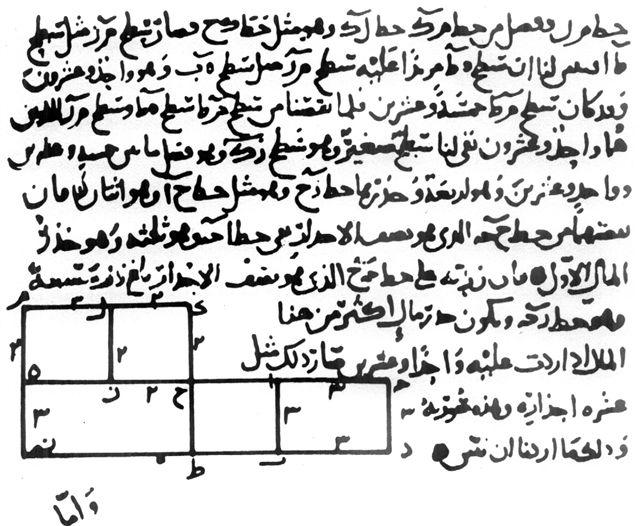 خط م ل ونفصل من خط م ك خط ل ك وهو مثل خط ك ح فصار سطح م ز مثل سطح
ط ا فتبين لنا ان سطح ه ط مزيدا عليه سطح م ز مثل سطح ه ب وهو واحد وعشرون
وقد كان سطح م ط خمسة وعشرين فلما نقصنا من سطح م ط سطح ه ط وسطح م ز اللذين
هما واحد وعشرون بقي لنا سطح صغير وهو سطح ز ك وهو فضل ما بين خمسة وعشرين
وواحد وعشرين وهو اربعة وجذرها خط ز ح وهو مثل خط ح ا وهو اثنان فان
نقصتهما من خط ح ج الذي هو نصف الاجذار بقي خط ا ج وهو ثلثة وهو جذر
المال الاول فان زدته على خط ج ح الذي هو نصف الاجذار بلغ ذلك سبعة
وهو خط ز ج ويكون جذر مال اكثر من هذا
المال اذا زدت عليه واحدا وعشرين صار ذلك مثل
عشرة اجذاره وهذه صورته
وذلك ما اردنا ان نبين
م ل ٢ ك
٣ ٢ ٢
ه ن ٢ ح ا ج
٣ ٣ ٣
ن ط ب د
واما